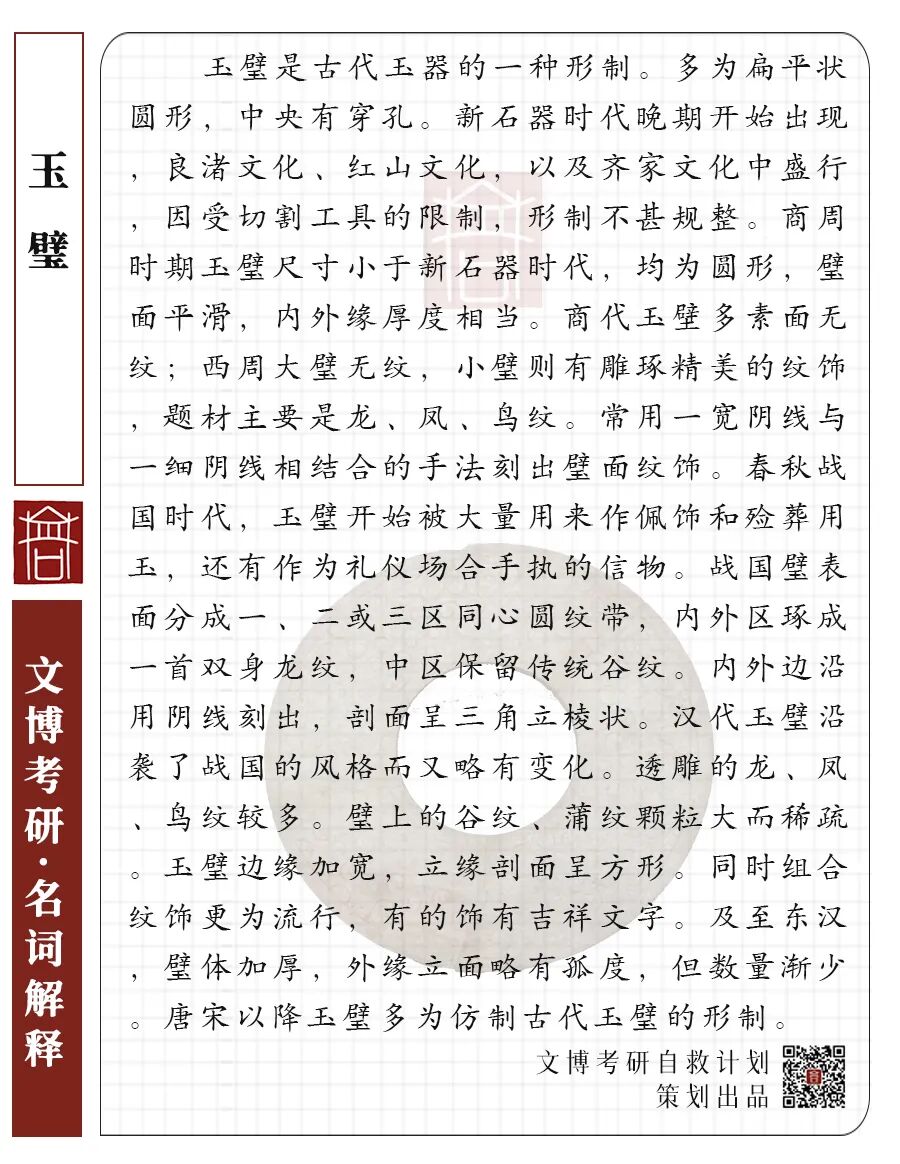 玉璧
文博考研·名词解释
玉璧是古代玉器的一种形制。多为扁平状
圆形，中央有穿孔。新石器时代晚期开始出现
，良渚文化、红山文化，以及齐家文化中盛行
，因受切割工具的限制，形制不甚规整。商周
时期玉璧尺寸小于新石器时代，均为圆形，璧
面平滑，内外缘厚度相当。商代玉璧多素面无
纹；西周大璧无纹，小璧则有雕琢精美的纹饰
，题材主要是龙、凤、鸟纹。常用一宽阴线与
一细阴线相结合的手法刻出璧面纹饰。春秋战
国时代，玉璧开始被大量用来作佩饰和殓葬用
玉，还有作为礼仪场合手执的信物。战国璧表
面分成一、二或三区同心圆纹带，内外区琢成
一首双身龙纹，中区保留传统谷纹。内外边沿
用阴线刻出，剖面呈三角立棱状。汉代玉璧沿
袭了战国的风格而又略有变化。透雕的龙、凤
、鸟纹较多。璧上的谷纹、蒲纹颗粒大而稀疏
。玉璧边缘加宽，立缘剖面呈方形。同时组合
纹饰更为流行，有的饰有吉祥文字。及至东汉
，璧体加厚，外缘立面略有孤度，但数量渐少
。唐宋以降玉璧多为仿制古代玉璧的形制。
文博考研自救计划
策划出品